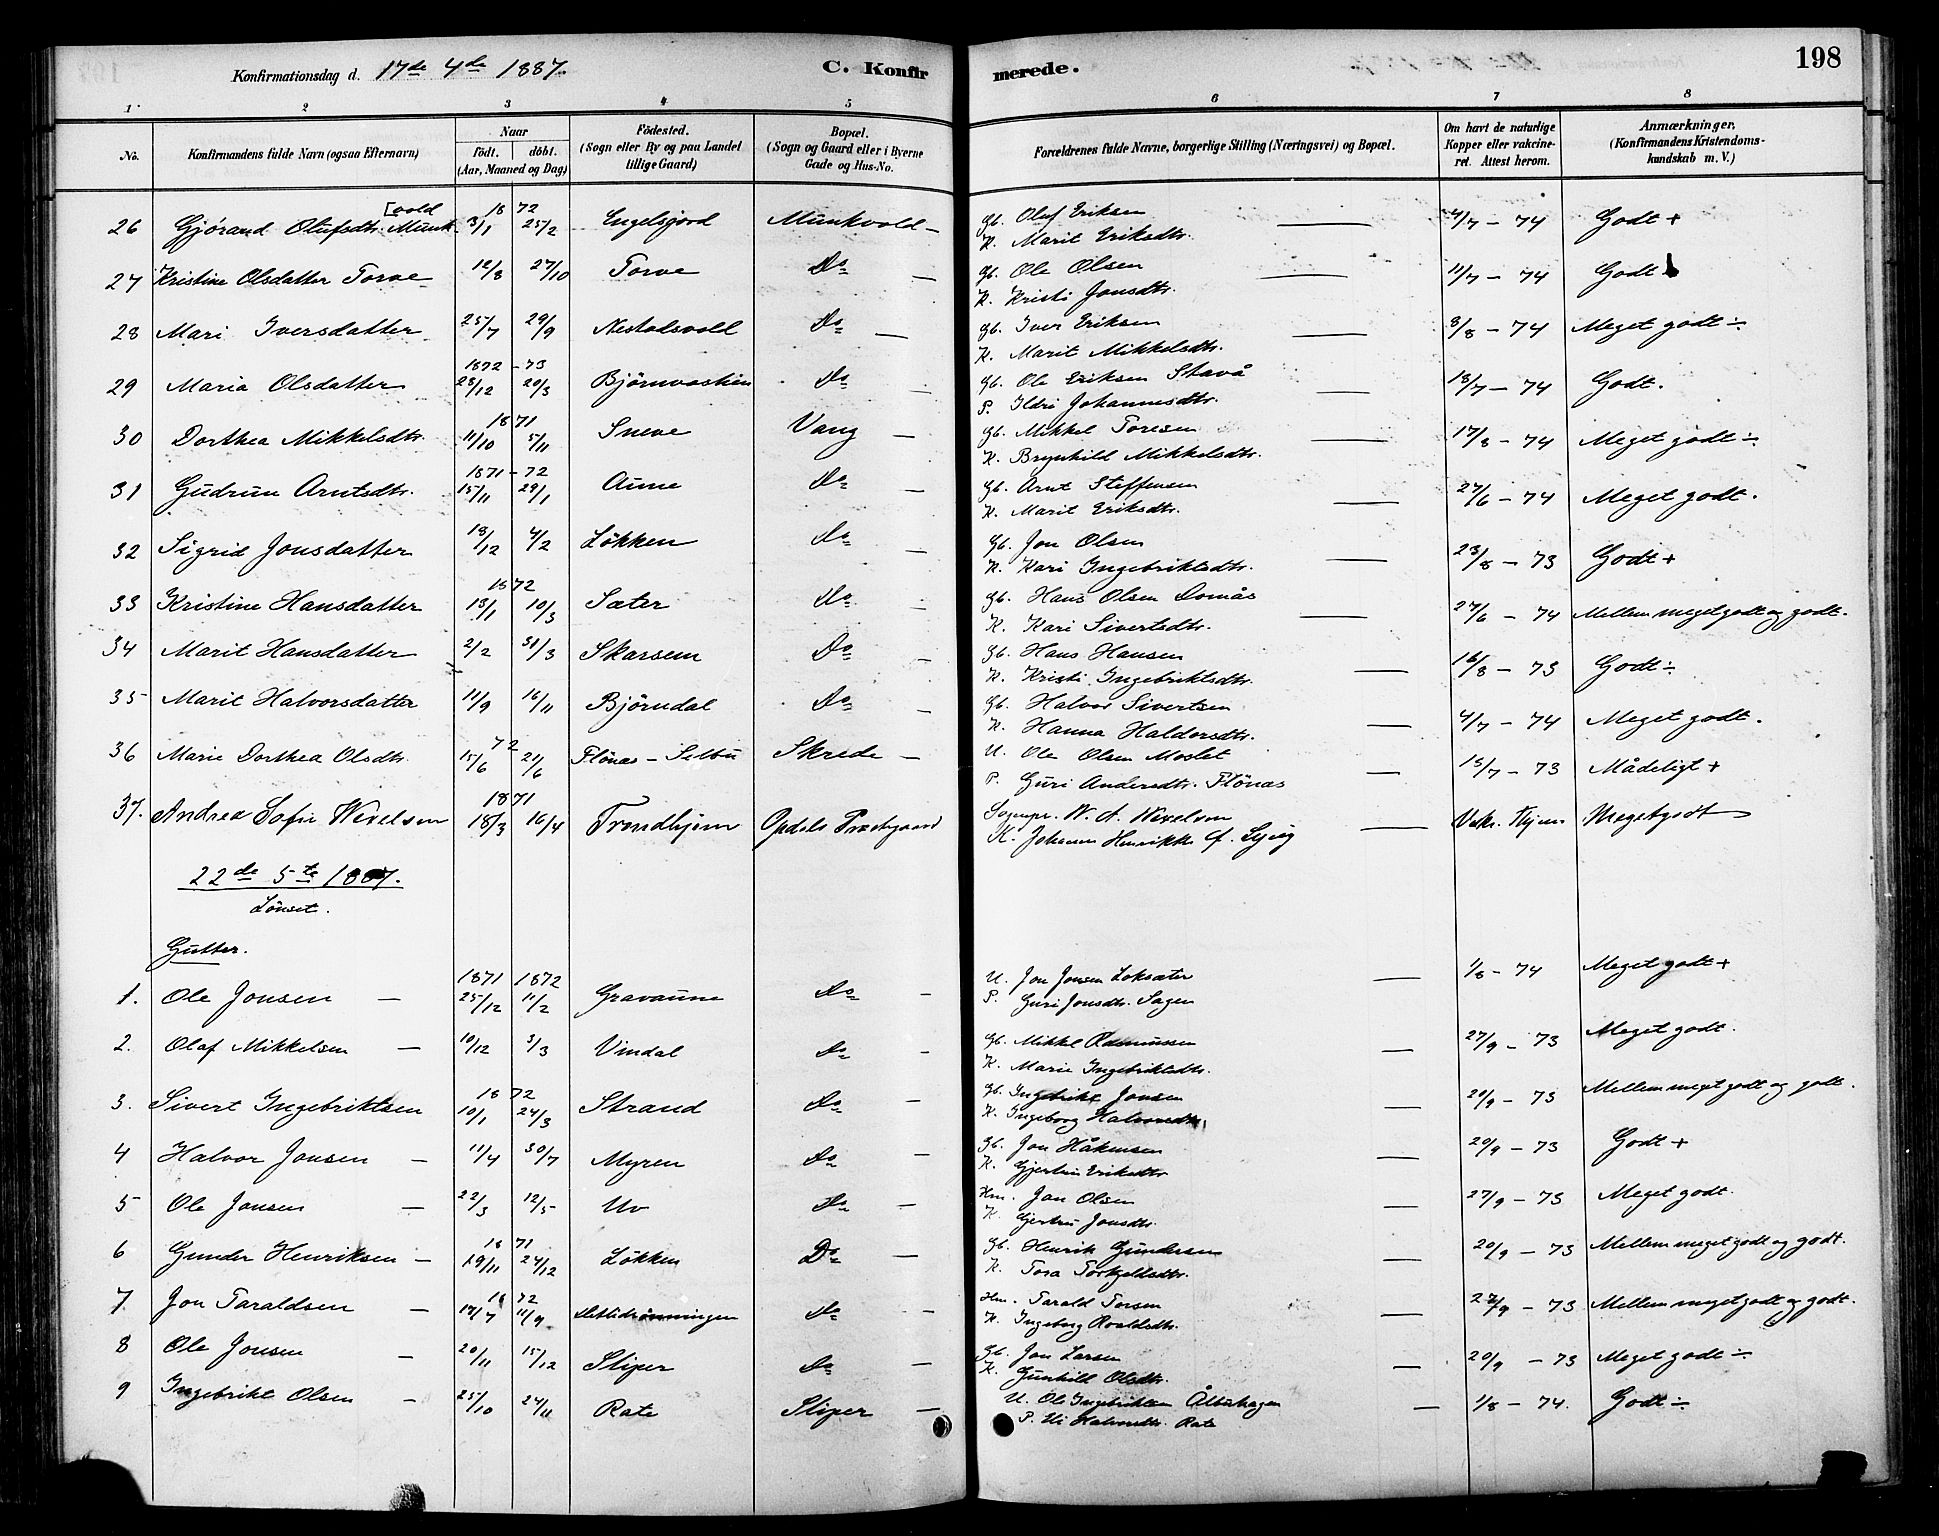 Konfirmationsdag d. 17de 4de 1887. C. Konfirmerede. 198
1 2 3 4 5 6 7 8
No. Konfirmandens fulde Navn (ogsaa Efternavn) Naar födt. döbt. (Aar, Maaned og Dag) Födested. (Sogn eller By og paa Landet tillige Gaard) Bopæl. (Sogn og Gaard eller i Byerne Gade og Hus-No. Forældrenes fulde Navne, borgerlige Stilling (Næringsvei) og Bopæl. Om havt de naturlige Kopper eller vakcineret. Attest herom. Anmærkninger. (Konfirmandens Kristendomskundskab m. V.)
[vold 1872
26 Gjørand Olufsdtr. Munk 3/1 25/2 Engelsjord Munkvold — Gb. Oluf Eriksen K. Marit Eriksdtr. — 4/7 – 74 Godt +
27 Kristine Olsdatter Torve 12/8 27/10 Torve Do — Gb. Ole Olsen K. Kristi Jonsdtr. — 11/7 – 74 Godt
28 Mari Iversdatter 25/7 29/9 Nestalsvoll Do — Gb. Iver Eriksen K. Marit Mikkelsdtr. — 8/8 – 74 Meget godt ÷
1872 – 73
29 Maria Olsdatter 28/12 20/3 Do Gb. Ole Eriksen Stavå P. Ildri Johannesdtr. — 13/7 – 74 Godt.
1871
30 Dorthea Mikkelsdtr. 11/10 5/11 Sneve Vang — Gb. Mikkel Toresen K. Brynhild Mikkelsdtr. — 17/8 – 74 Meget godt ÷
1871 – 72
31 Gudrun Arntsdtr. 15/11 29/1 Aune Do — Gb. Arnt Steffensen K. Marit Eriksdtr. — 27/6 – 74 Meget godt.
32 Sigrid Jonsdatter 18/12 4/2 Løkken Do — Gb. Jon Olsen K. Kari Ingebriktsdtr. — 23/8 – 73 Godt +
1872
33 Kristine Hansdatter 13/1 10/3 Sæter Do — Gb. Hans Olsen Domås K. Kari Sivertsdtr. — 27/6 – 74 Mellem meget godt og godt.
34 Marit Hansdatter 2/2 31/3 Skarsem Do — Gb. Hans Hansen K. Kristi Ingebriktsdtr. — 16/8 – 73 Godt ÷
35 Marit Halvorsdatter 11/9 16/11 Björndal Do — Gb. Halvor Sivertsen K. Hanna Haldorsdtr. — 4/7 – 74 Meget godt.
72
36 Marie Dorthea Olsdtr. 15/6 21/6 Flönas – Selbu Skrede — U. Ole Olsen Moslet P. Guri Andersdtr. Flönas — 15/7 – 73 Mådeligt +
1871
37. Andrea Sofie Wexelsen 18/3 16/4 Trondhjem Opdals Præstgaard Sognepr. W. A. Wexelsen K. Johanne Henrikke f. Lysø — Vakc. Thjem Megetgodt
22de 5te 1887.
Lönset.
Gutter.
1871 1872
1. Ole Jonsen — 25/12 11/2 Gravaune Do — U. Jon Jonsen Loksæter P. Guri Jonsdtr. Sagen — 1/8 – 74 Meget godt +
2. Olaf Mikkelsen — 10/12 3/3 Vindal Do — Gb. Mikkel Rasmussen K. Marie Ingebriktsdtr. — 27/9 – 73 Meget godt.
1872
3. Sivert Ingebriktsen 10/1 24/3 Strand Do — Gb. Ingebrikt Jonsen K. Ingeborg Halvorsdtr. — 20/9 – 73 Mellem meget godt og godt.
4 Halvor Jonsen — 11/4 30/7 Myren Do — Gb. Jon Håkensen K. Gjertru Eriksdtr — 20/9 – 73 Godt +
5 Ole Jonsen — 22/3 12/5 Uv Do — Hm. Jon Olsen K. Gjertru Jonsdtr. — 27/9 – 73 Meget godt.
1871
6 Gunder Henriksen — 19/11 24/12 Løkken Do — Gb. Henrik Gundersen K. Tora Torkeldsdtr. — 20/9 – 73 Mellem meget godt og godt.
1872
7 Jon Taraldsen — 17/7 11/9 Do — Hm. Tarald Torsen K. Ingeborg Roaldsdtr. — 27/9 – 73 Mellem meget godt og godt.
8 Ole Jonsen — 20/11 15/12 Stiper Do — Gb. Jon Larsen K. Gunhild Olsdtr. — 20/9 – 73 Meget godt ÷
9 Ingebrikt Olsen — 25/10 24/11 Rate Stiper — U. Ole Ingebriktsen Ålbuhagen P. Eli Halvorsdtr. Rate — 1/8 – 74. Godt ÷